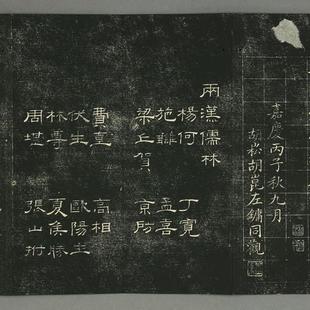 嘉慶丙子秋九月
胡崧胡崑左鏞同觀
兩漢儒林
楊何 丁寬
施讎 孟喜
梁丘賀 京房
費直 高相
伏生 歐陽生
林尊 夏侯勝
周堪 張山拊